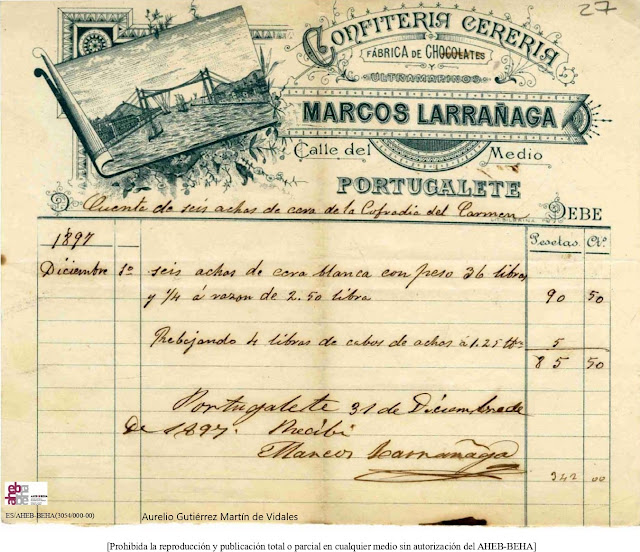 27
CONFITERIA CERERIA
FÁBRICA DE CHOCOLATES
Y
ULTRAMARINOS
MARCOS LARRAÑAGA
Calle del Medio
PORTUGALETE
Cuenta de seis achas de cera de la Cofradia del Carmen DEBE
1897 Pesetas Cs.
Diciembre 1º seis achas de cera blanca con peso 36 libras
y 1/4 á razon de 2.50 libra 90 50
Rebajando 4 libras de cabos de achas á 1.25 5
85 50
Portugalete 31 de Diciembre de
de 1897. Recibí
Marcos Larrañaga
342 00
ES/AHEB-BEHA(3054/000-00)
Aurelio Gutiérrez Martín de Vidales
[Prohibida la reproducción y publicación total o parcial en cualquier medio sin autorización del AHEB-BEHA]